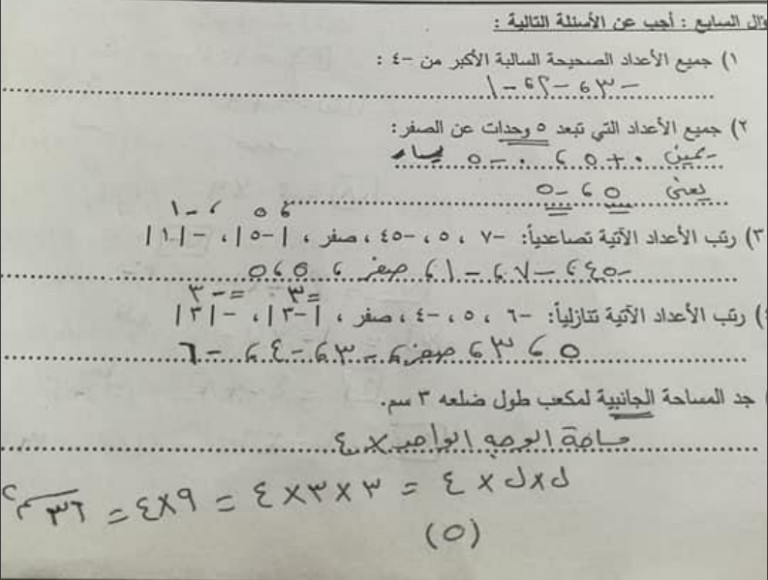 ؤال السابع : أجب عن الأسئلة التالية :
١) جميع الأعداد الصحيحة السالبة الأكبر من -٤ :
-٣ ، -٢ ، -١
٢) جميع الأعداد التي تبعد ٥ وحدات عن الصفر:
يمين ٠ + ٥ ، ٠ - ٥ يسار
يعني ٥ ، -٥
٥ ، -١
٣) رتب الأعداد الآتية تصاعدياً: -٧ ، ٥ ، -٤٥ ، صفر ، |-٥| ، -|١|
-٤٥ ، -٧ ، -١ ، صفر ، ٥ ، ٥
=٣ = -٣
) رتب الأعداد الآتية تنازلياً: -٦ ، ٥ ، -٤ ، صفر ، |-٣| ، -|٣|
٥ ، ٣ ، صفر ، -٣ ، -٤ ، -٦
) جد المساحة الجانبية لمكعب طول ضلعه ٣ سم.
مساحة الوجه الواحد × ٤
ل × ل × ٤ = ٣ × ٣ × ٤ = ٩ × ٤ = ٣٦ سم٢
(٥)